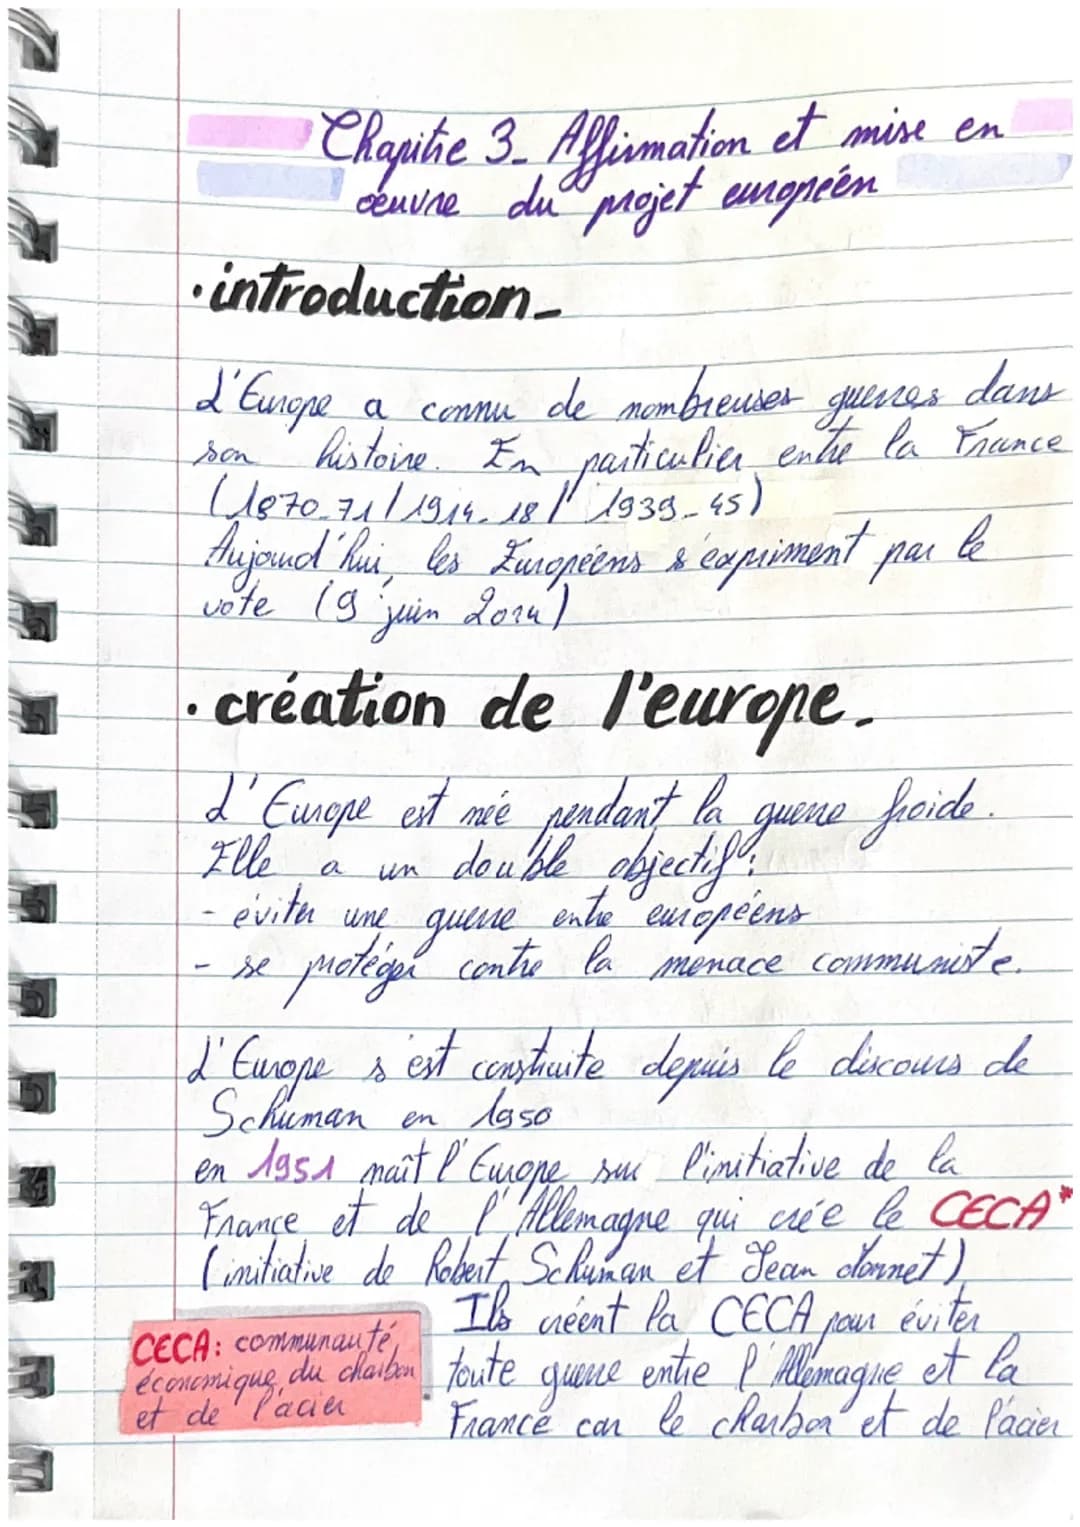 Chapitre 3_ Affirmation et mise en
œuvre du projet européén
• introduction_
L'Europe a connu de nombreuses guerres dans
son histoire. En particulier entre la France
(1870_71/1914_18/1939_45)
Aujourd'hui, les Européens s'expriment par le
vote (9 juin 2024)
• création de l'europe_
L'Europe est née pendant la guerre froide.
Elle a un double objectif :
- éviter une guerre entre européens
- se protéger contre la menace communiste.
L'Europe s'est construite depuis le discours de
Schuman en 1950
en 1951 naît l'Europe sur l'initiative de la
France et de l'Allemagne qui crée le CECA*
(initiative de Robert Schuman et Jean Monnet)
Ils créent la CECA pour éviter
toute guerre entre l'Allemagne et la
France car le charbon et de l'acier
CECA : communauté
économique du charbon
et de l'acier